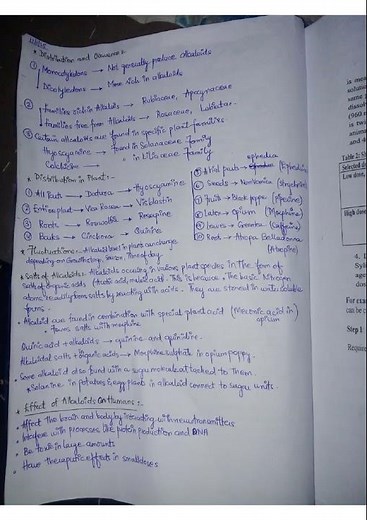 * Distribution and Sources:-
① Monocotyledons → Not generally produce alkaloids
Dicotyledons → More rich in alkaloids
② Families rich in Alkaloids → Rubiaceae, Apocynaceae
Families free from Alkaloids → Rosaceae, Labiatae
③ Certain alkaloids are found in specific plant families
Hyoscyamine → found in Solanaceae family
Colchicine → in Liliaceae family
* Distribution in Plant:-
① All Parts → Datura → Hyoscyamine
② Entire plant → Vinca Rosea → Vinblastin
③ Roots → Rauwolfia → Reserpine
④ Barks → Cinchona → Quinine
⑤ Arial parts → ephedra (Ephedrine)
⑥ Seeds → Nux Vomica (Strychnine)
⑦ Fruits → Black pepper
⑧ Latex → opium (Morphine)
⑨ leaves → (Caffeine)
⑩ Roots → Atropa Belladonna
(Atropine)
* Fluctuations:- Alkaloid level in plants can change
depending on Growth stage, Season, Time of day.
* Salts of Alkaloids:- Alkaloids occuring in various plant species in the form of
Salts of organic acids (acetic acid, malic acid). This is because the basic Nitrogen
atoms readily forms salts by reacting with acids. They are stored in water soluble
forms.
• Alkaloid are found in combination with special plant acid (Meconic acid in)
opium
• forms salts with morphine
Quinic acid + alkaloids → quinine and quinidine.
Alkaloidal salts + organic acids → Morphine sulphate in opium poppy.
• Some alkaloid also found with a sugar molecule attached to them.
* Solanine in potatoes & egg plants is alkaloid connect to sugar units.
* Effect of Alkaloids On Humans:-
• Affect the brain and body by interacting with neurotransmitters
• Interfere with processes like protein production and DNA
• Be toxic in large amounts
• Have therapeutic effects in small doses